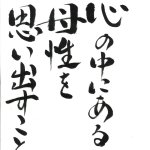 心の中にある
母性を
思い出すこと